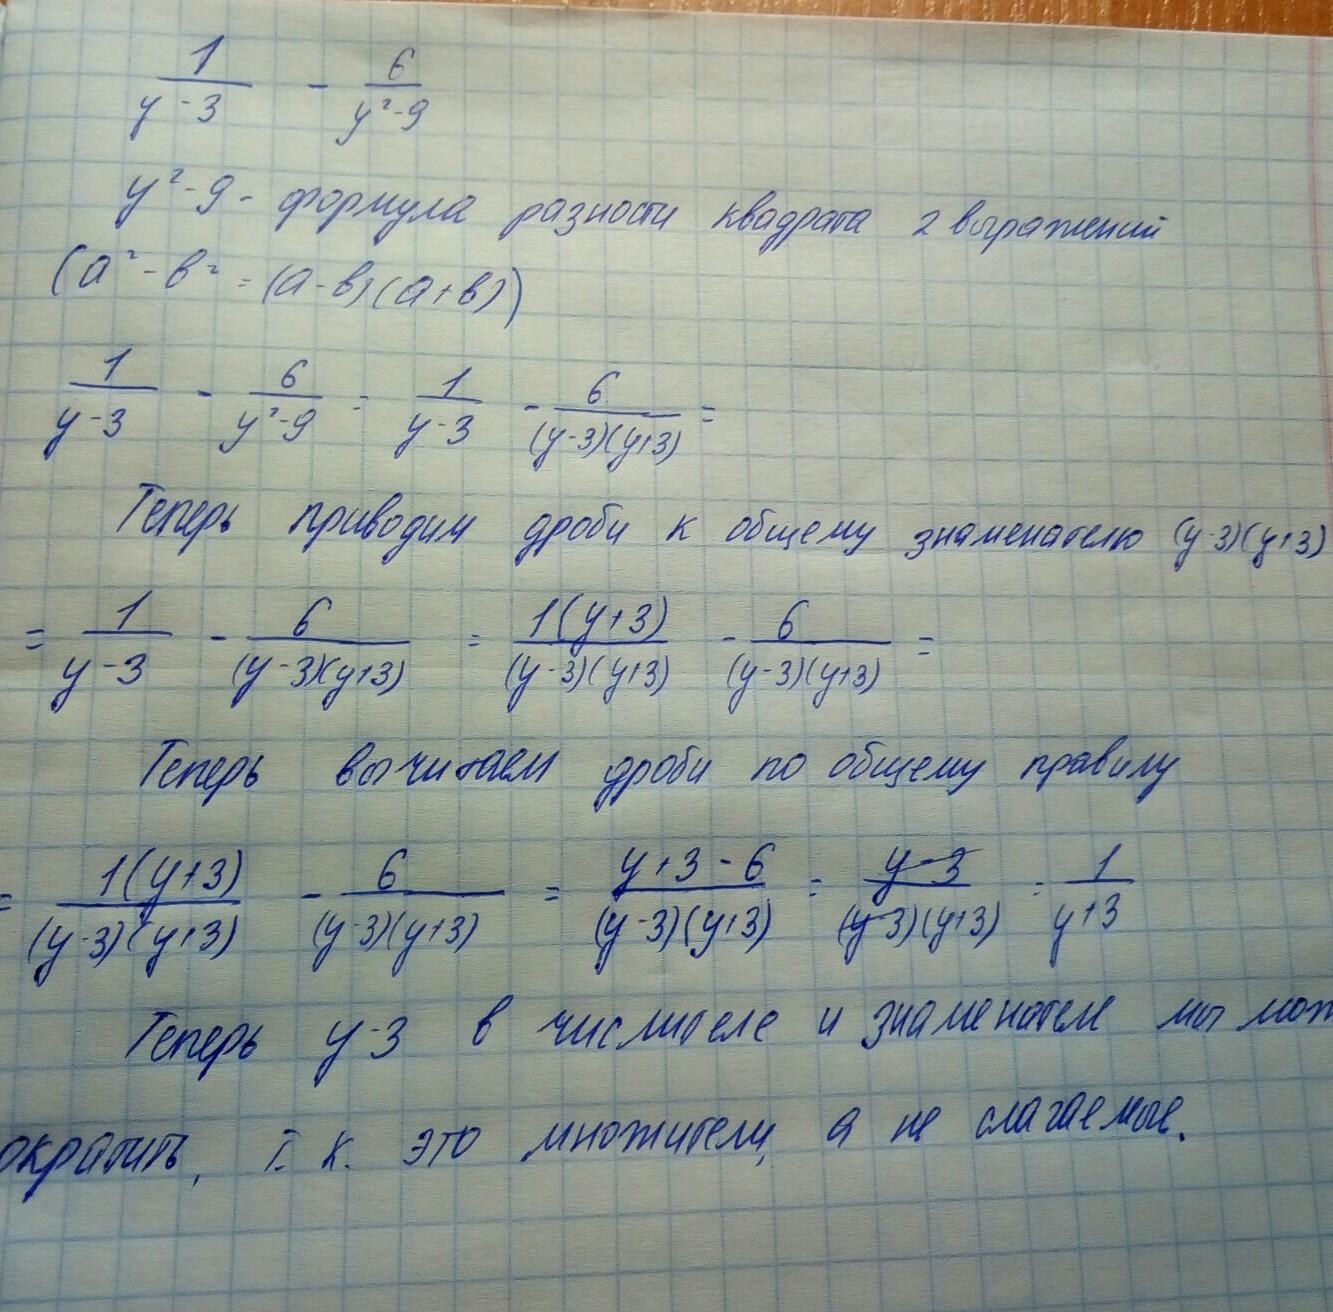 1/(y-3) - 6/(y²-9)
y²-9 - формула разности квадрата 2 выражений
(a²-b² = (a-b)(a+b))
1/(y-3) - 6/(y²-9) = 1/(y-3) - 6/((y-3)(y+3)) =
Теперь приводим дроби к общему знаменателю (y-3)(y+3)
= 1/(y-3) - 6/((y-3)(y+3)) = 1(y+3)/((y-3)(y+3)) - 6/((y-3)(y+3)) =
Теперь вычитаем дроби по общему правилу
= 1(y+3)/((y-3)(y+3)) - 6/((y-3)(y+3)) = (y+3-6)/((y-3)(y+3)) = (y-3)/((y-3)(y+3)) = 1/(y+3)
Теперь y-3 в числителе и знаменателе мы мож
ократить, т. к. это множители, а не слагаемые.